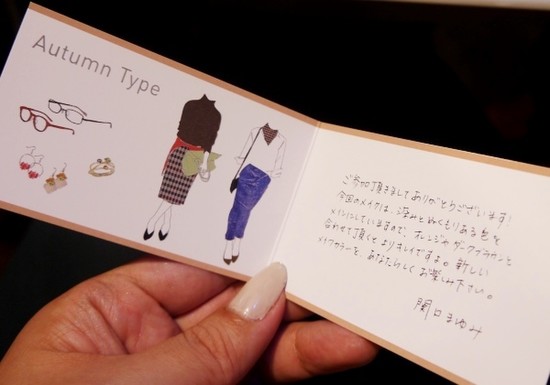 Autumn Type
ご参加頂きましてありがとうございます!
今回のメイクは、深みとぬくもりある色を
メインにしていますので、オレンジやダークブラウンと
合わせて頂くとよりキレイですよ。新しい
メイクカラーを、あなたらしくお楽しみ下さい。
関口まゆみ